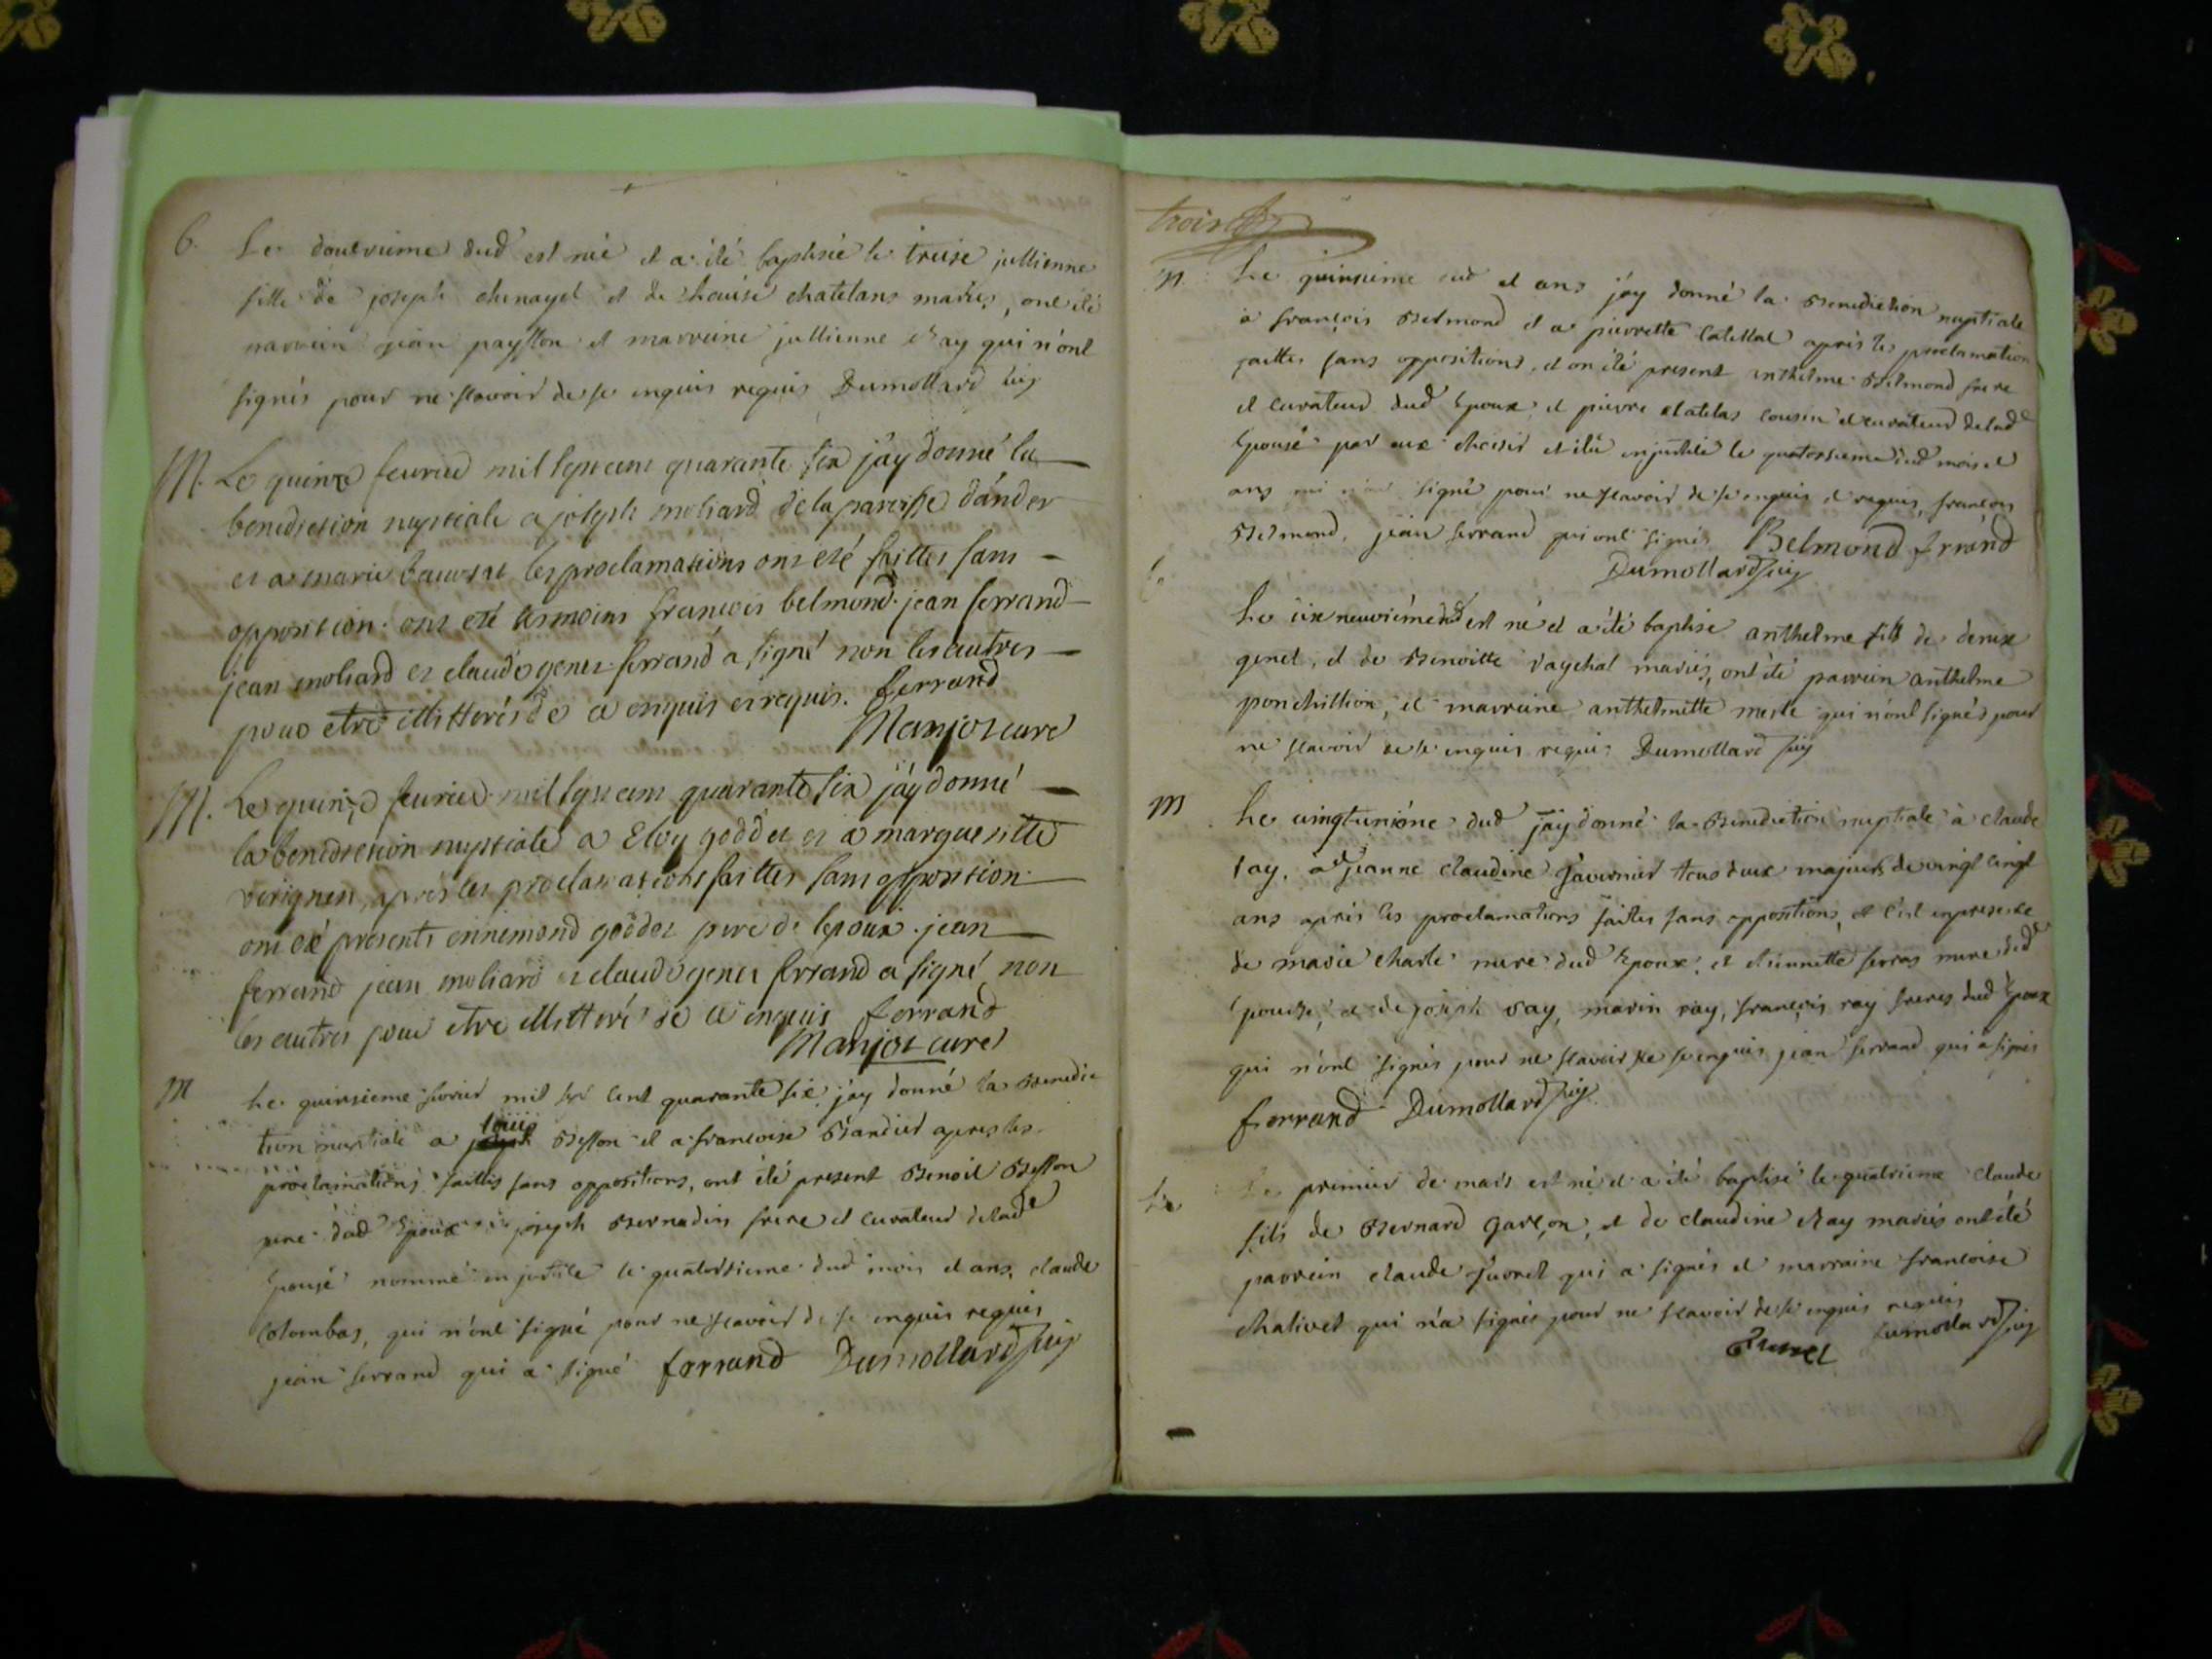 b. Le doutrieme dud est née et a été baptisée le treise jullienne
fille de joseph chenayel et de Louise chatelans mariés, ont été
parrein jean paysson et marreine jullienne Ray qui n'ont
signés pour ne sçavoir de se enquis requis Dumollard vic
M. Le quinze feurier mil sept cent quarante six j'ay donné la
benediction nuptiale a joseph moliard de la paroisse d'ander
et a marie les proclamations ont eté faittes sans
opposition. ont eté tesmoins francois belmond. jean ferrand
jean moliard et claude genet. ferrand a signé non les autres
pour etre illitterés de ce enquis et requis. ferrand
Manjot curé
M. Le quinze feurier mil sept cent quarante six j'ay donné
la benediction nuptiale a Eloy goddet et a margueritte
apres les proclamations faittes sans opposition
ont eté presents ennemond goddet pere de lepoux. jean
ferrand jean moliard et claude genet ferrand a signé non
les autres pour etre illitteré de ce enquis ferrand
Manjot curé
M Le quinsieme fevrier mil sept cent quarante six j'ay donné la Benedic
tion nuptiale a louis Besson et a francoise Bandier apres les
proclamations faittes sans oppositions, ont été present Benoit Besson
pere dud Epoux et joseph Bernadin frere et curateur de lade
Epouse nommé en justice le quatorsieme dud mois et ans, claude
Colombas, qui n'ont signé pour ne sçavoir de se enquis requis
jean ferrand qui a signé ferrand Dumollard vic
trois
M Le quinsieme dud et ans j'ay donné la Benediction nuptiale
à françois Belmond et a pierrette apres les proclamation
faittes sans oppositions, et on été present anthelme Belmond frere
et curateur dud Epoux, et pierre cousin et curateur de lade
Epouse par eux choisis et élu en justice le quatorsieme dud mois et
ans signé pour ne sçavoir de se enquis et requis, francois
Belmond, jean ferrand qui ont signés Belmond ferrand
Dumollard vic
Le dix neuviéme dud est né et a été baptise anthelme fils de denise
genet, et de Benoitte mariés, ont été parrein anthelme
ponchillion, et marreine anthelmette merle qui n'ont signés pour
ne sçavoir de se enquis requis Dumollard vic
M Le vingtunióne dud j'ay donné la Benediction nuptiale à claude
ray, a jeanne claudine javernier tous deux majeurs de vingt cinq
ans après les proclamations faites sans oppositions, et c'est en presence
de marie charle mere dud Epoux, et ferras mere de lade
Epouse, et de joseph ray, marin ray, françois ray freres dud Epoux
qui n'ont signés pour ne sçavoir de se enquis jean ferrand qui a signés
ferrand Dumollard vic
Le premier de mars est né et a été baptisé le quatrieme claude
fils de Bernard Garçon, et de claudine Ray mariés ont été
parrein claude qui a signés et marraine francoise
chalivet qui n'a signés pour ne sçavoir de se enquis requis
Dumollard vic